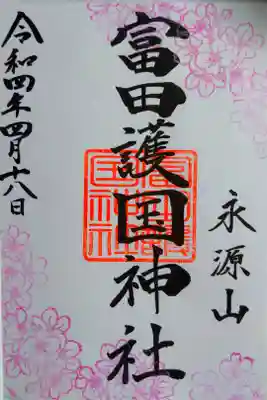 永源山
富田護国神社
令和四年四月十八日